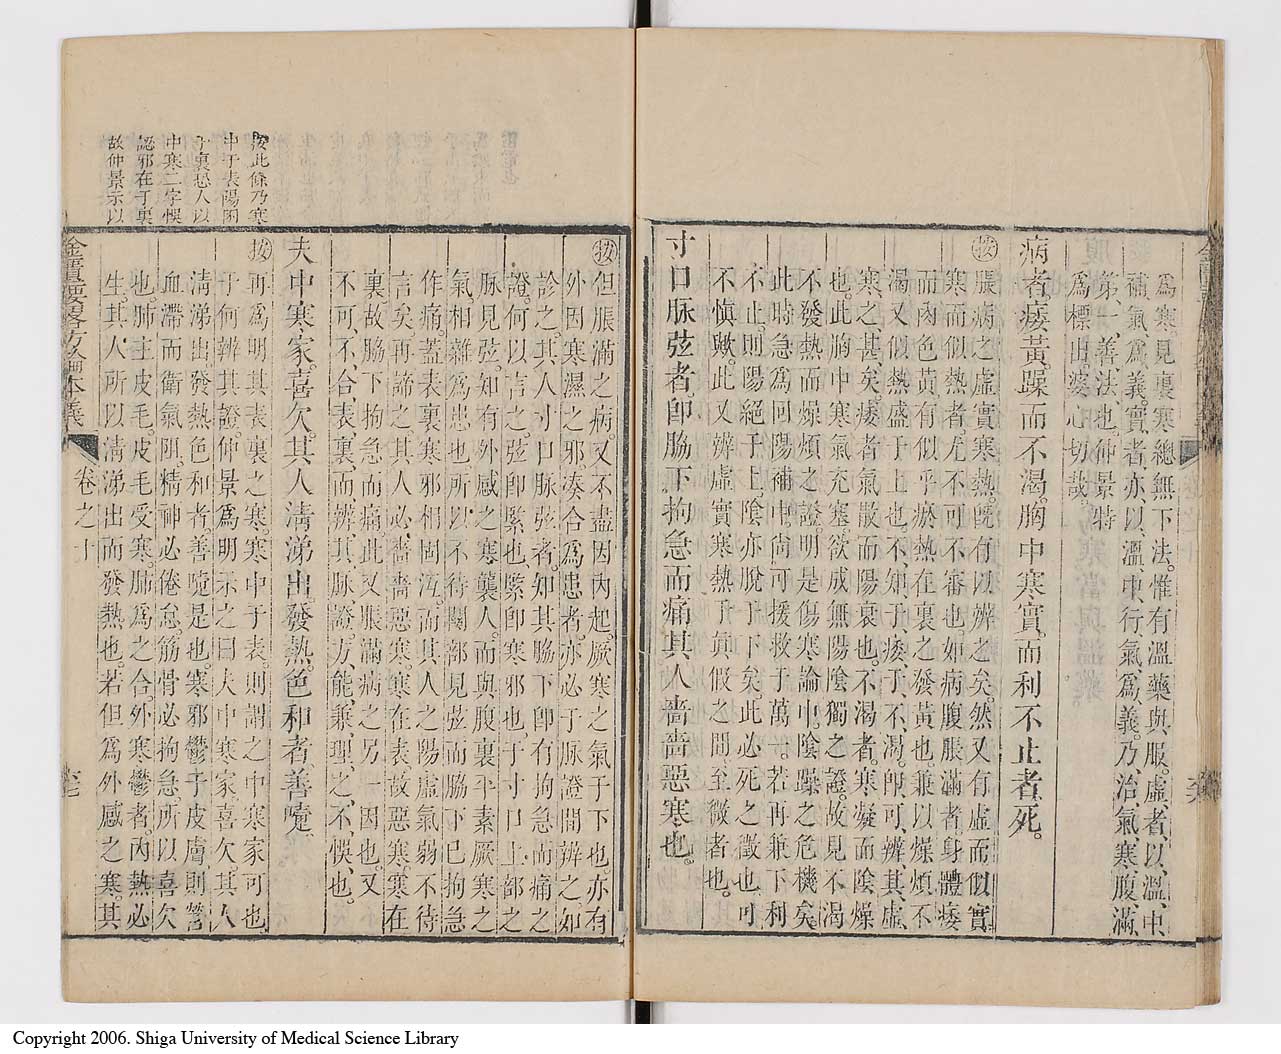 為寒見裏寒總無下法惟有溫藥與服虛者以溫中
補氣為義實者亦以溫中行氣為義乃治氣寒腹滿
第一善法也仲景特
為標出婆心切哉
病者痿黃躁而不渴胸中寒實而利不止者死
按脹病之虛實寒熱既有以辨之矣然又有虛而似實
寒而似熱者尤不可不審也如病腹脹滿者身體痿
而肉色黃有似乎瘀熱在裏之發黃也兼以燥煩不
渴又似熱盛于上也不知于痿于不渴即可辨其虛
寒之甚矣痿者氣散而陽衰也不渴者寒凝而陰燥
也此胸中寒氣充塞欲成無陽陰獨之證故見不渴
不發熱而燥煩之證明是傷寒論中陰躁之危機矣
此時急為回陽補中尚可援救于萬一若再兼下利
不止則陽絕于上陰亦脫于下矣此必死之徵也可
不慎歟此又辨虛實寒熱于真假之間至微者也
寸口脉弦者即脇下拘急而痛其人嗇嗇惡寒也
按但脹滿之病又不盡因內起厥寒之氣于下也亦有
外因寒濕之邪湊合為患者亦必于脉證間辨之如
診之其人寸口脉弦者知其脇下即有拘急而痛之
證何以言之弦即緊也緊即寒邪也于寸口上部之
脉見弦知有外感之寒襲人而與腹裏平素厥寒之
氣相雜為患也所以不待關部見弦而脇下已拘急
作痛蓋表裏寒邪相固沍而其人之陽虛氣弱不待
言矣再諦之其人必嗇嗇惡寒寒在表故惡寒寒在
裏故脇下拘急而痛此又脹滿病之另一因也又
不可不合表裏而辨其脉證方能兼理之不悞也
夫中寒家喜欠其人清涕出發熱色和者善嚏
按此條乃寒
中于表陽困
于裏恐人以
中寒二字悞
認邪在于裏
故仲景示以
按再為明其表裏之寒寒中于表則謂之中寒家可也
于何辨其證仲景為明示之曰夫中寒家喜欠其人
清涕出發熱色和者善嚏是也寒邪鬱于皮膚則營
血滯而衛氣阻精神必倦怠筋骨必拘急所以喜欠
也肺主皮毛皮毛受寒肺為之合外寒鬱者內熱必
生其人所以清涕出而發熱也若但為外感之寒其
金匱要略方論本義
卷之十